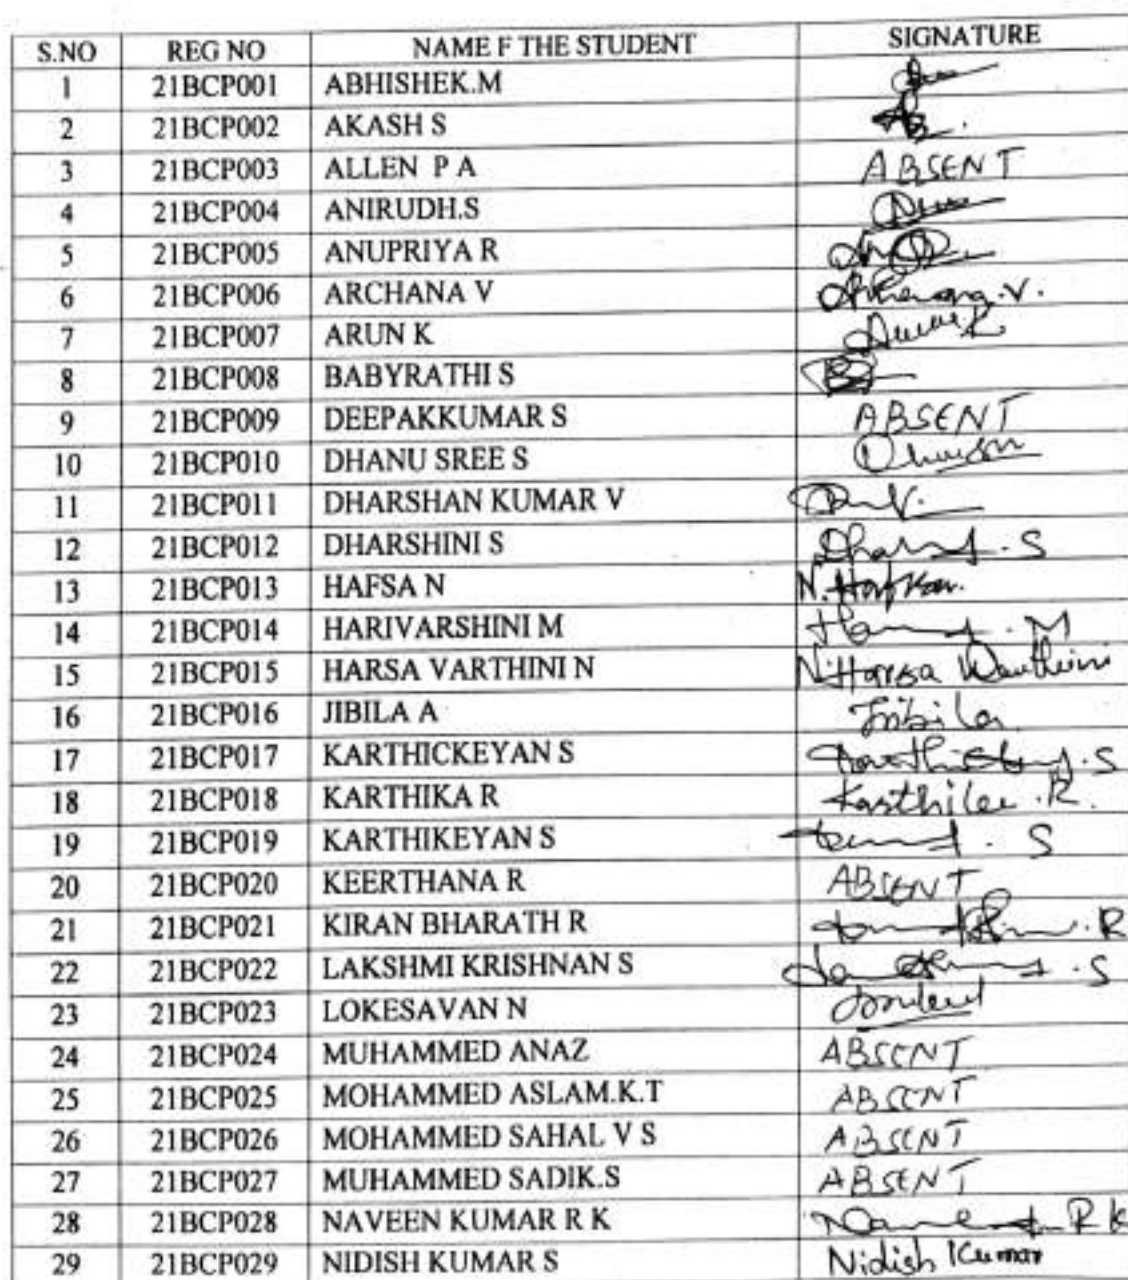 S.NO REG NO NAME F THE STUDENT SIGNATURE
1 21BCP001 ABHISHEK.M
2 21BCP002 AKASH S
3 21BCP003 ALLEN P A ABSENT
4 21BCP004 ANIRUDH.S
5 21BCP005 ANUPRIYA R
6 21BCP006 ARCHANA V
7 21BCP007 ARUN K
8 21BCP008 BABYRATHI S
9 21BCP009 DEEPAKKUMAR S ABSENT
10 21BCP010 DHANU SREE S
11 21BCP011 DHARSHAN KUMAR V
12 21BCP012 DHARSHINI S
13 21BCP013 HAFSA N
14 21BCP014 HARIVARSHINI M
15 21BCP015 HARSA VARTHINI N N.Harsa Varthini
16 21BCP016 JIBILA A Jibila
17 21BCP017 KARTHICKEYAN S
18 21BCP018 KARTHIKA R Karthika .R.
19 21BCP019 KARTHIKEYAN S
20 21BCP020 KEERTHANA R ABSENT
21 21BCP021 KIRAN BHARATH R
22 21BCP022 LAKSHMI KRISHNAN S
23 21BCP023 LOKESAVAN N
24 21BCP024 MUHAMMED ANAZ ABSENT
25 21BCP025 MOHAMMED ASLAM.K.T ABSENT
26 21BCP026 MOHAMMED SAHAL V S ABSENT
27 21BCP027 MUHAMMED SADIK.S ABSENT
28 21BCP028 NAVEEN KUMAR R K
29 21BCP029 NIDISH KUMAR S Nidish Kumar